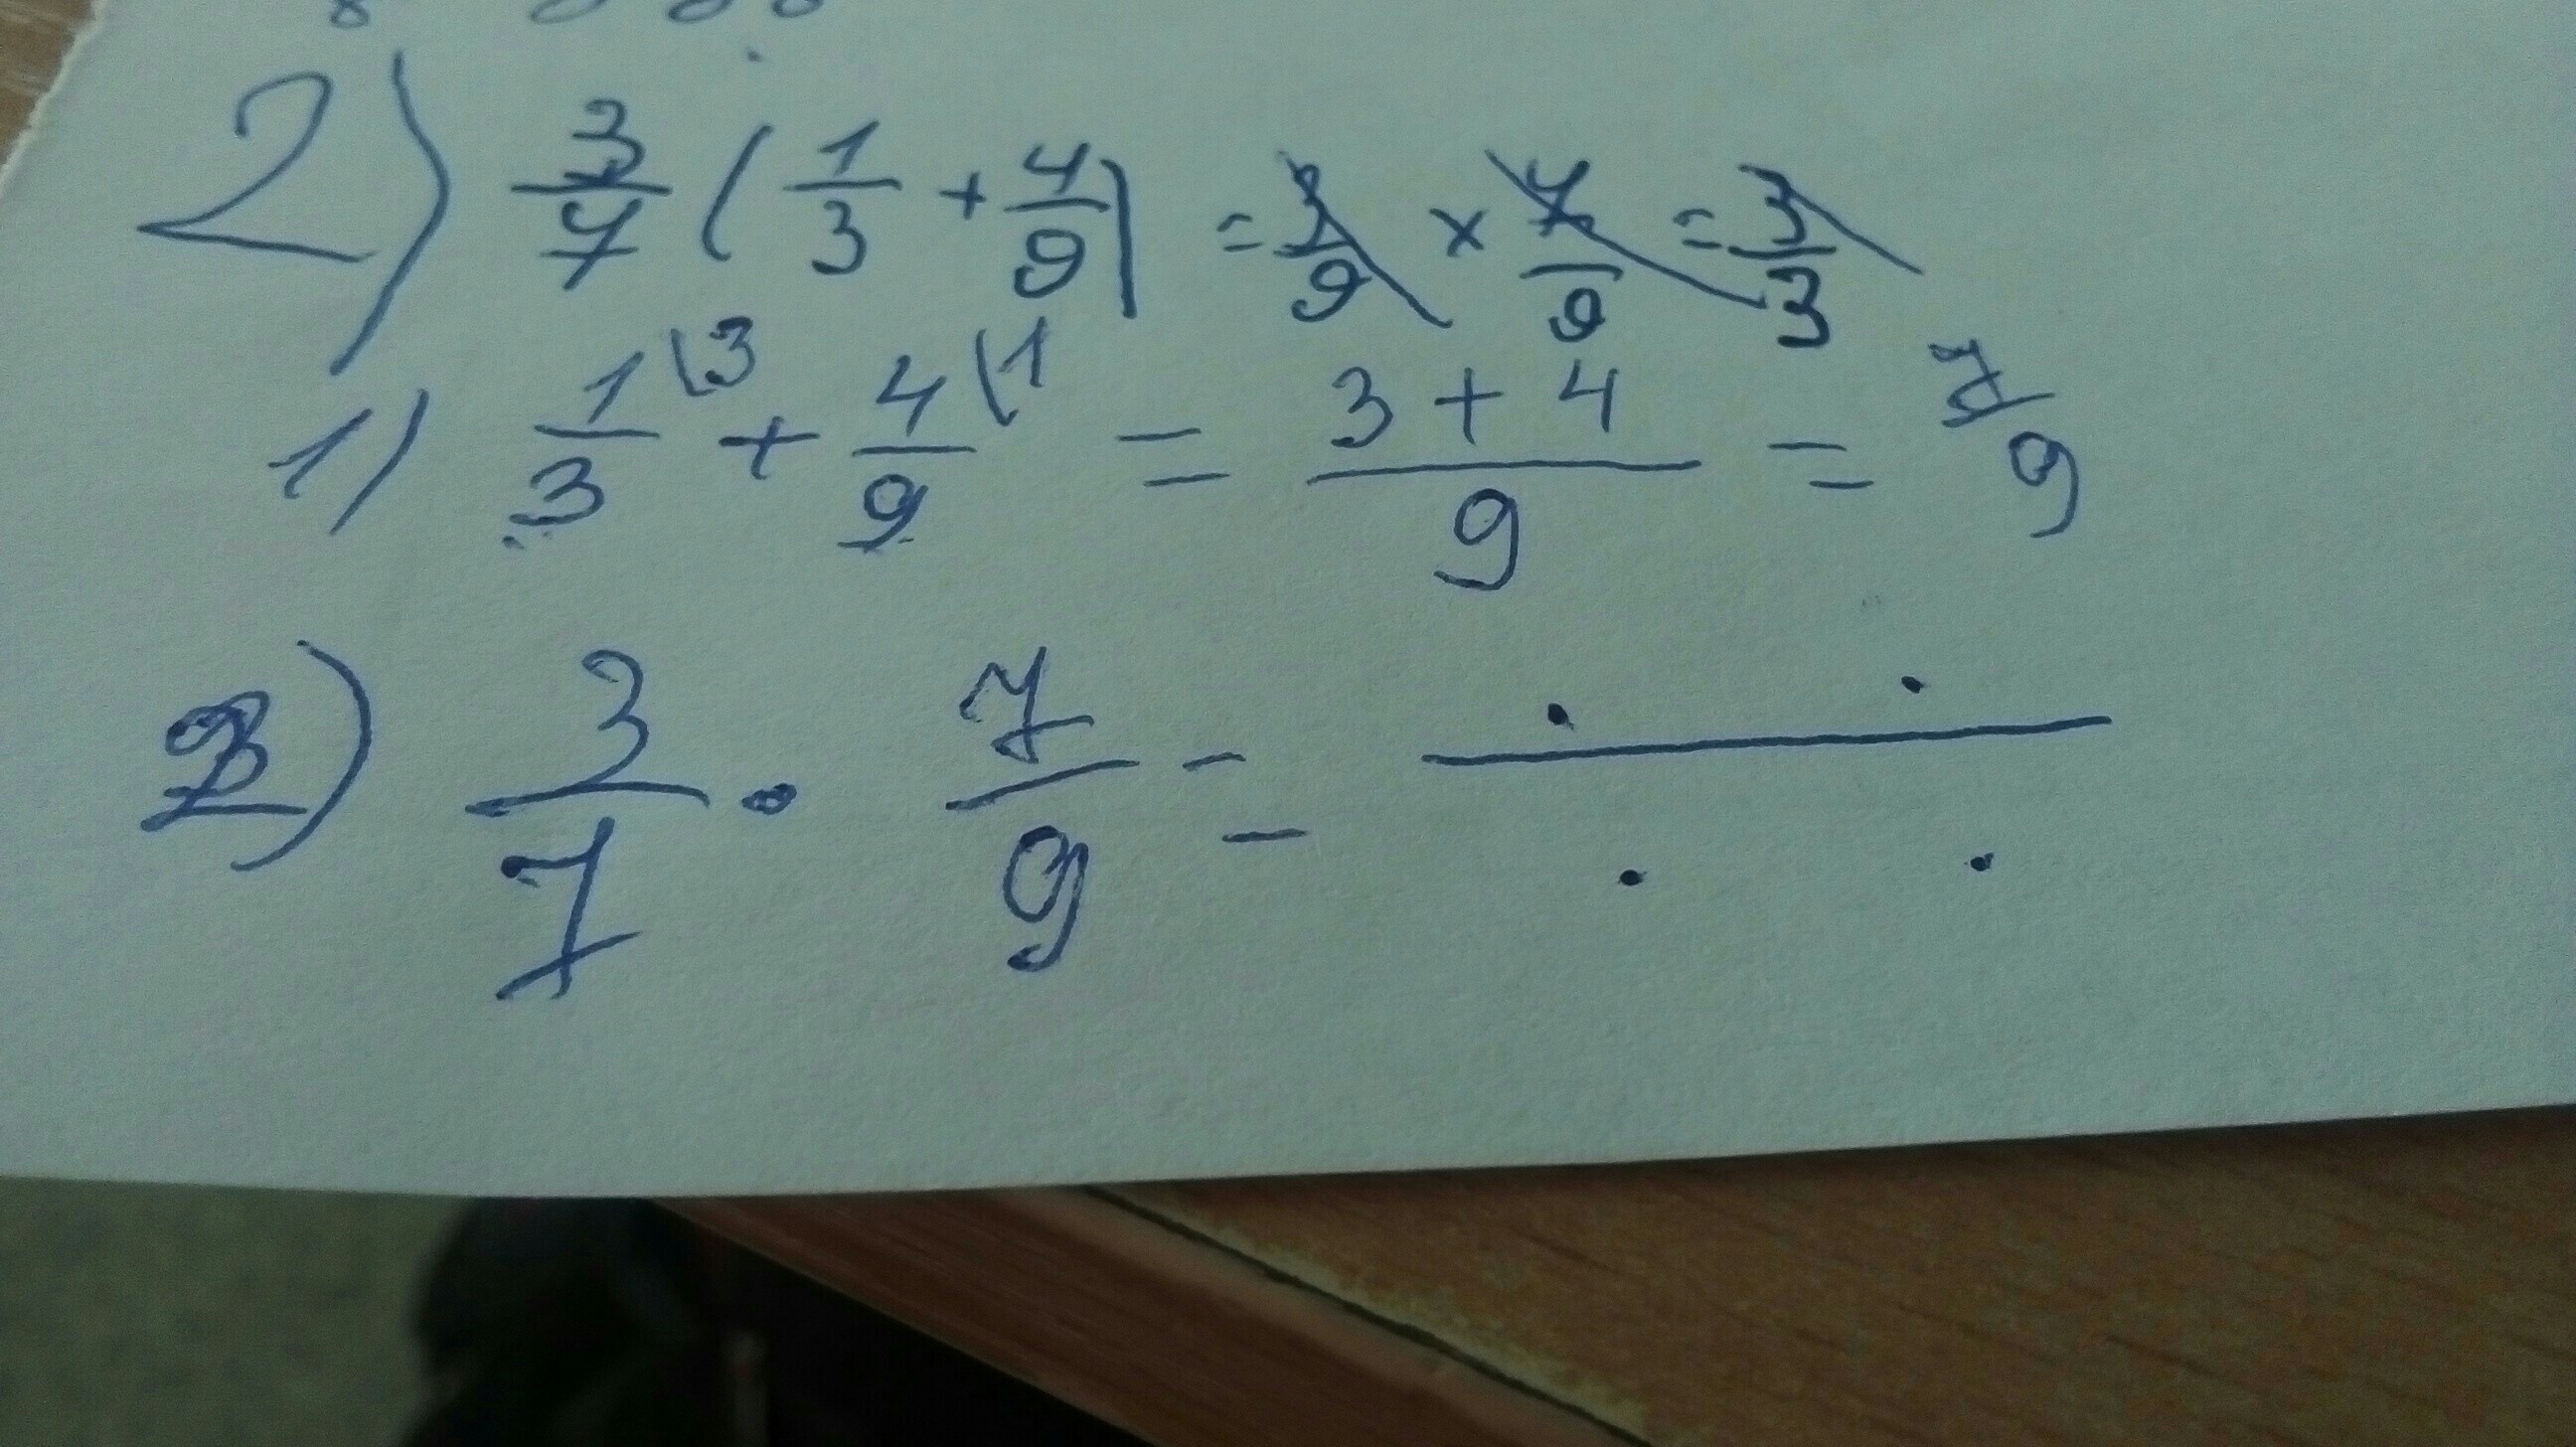 2) 3/7 (1/3 + 4/9) = 3/9 × 7/9 = 3/3
1) 1/3 \3 + 4/9 \1 = 3 + 4/9 = 7/9
2) 3/7 · 7/9 =